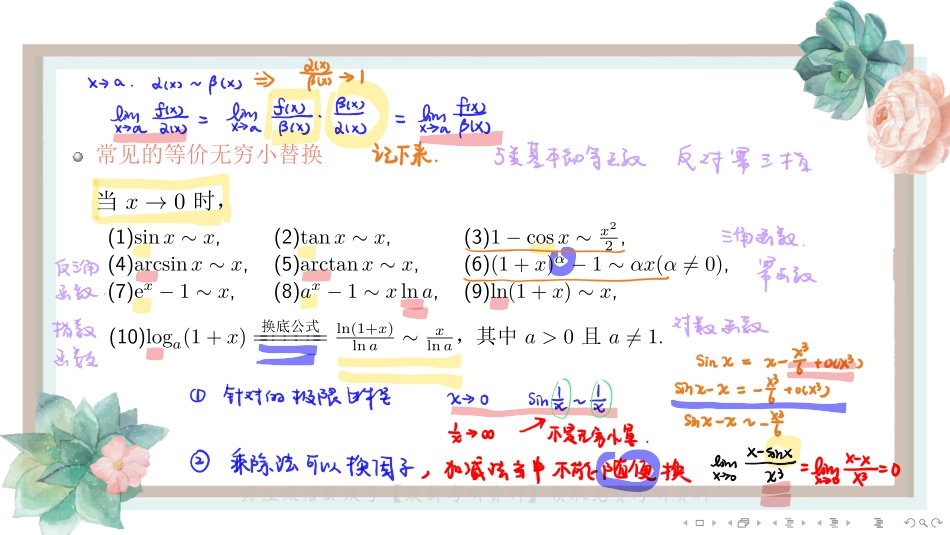 x→a. α(x) ~ β(x) ⇒ α(x)/β(x) → 1
lim x→a f(x)/α(x) = lim x→a f(x)/β(x) · β(x)/α(x) = lim x→a f(x)/β(x)
常见的等价无穷小替换 记下来. 5类基本初等函数 反对幂三指
当 x → 0 时，
(1)sin x ∼ x, (2)tan x ∼ x, (3)1 − cos x ∼ x²/2, 三角函数.
反三角函数. (4)arcsin x ∼ x, (5)arctan x ∼ x, (6)(1 + x)^α − 1 ∼ αx(α ≠ 0), 幂函数
(7)e^x − 1 ∼ x, (8)a^x − 1 ∼ x ln a, (9)ln(1 + x) ∼ x,
指数函数 (10)log_a(1 + x) 换底公式 ln(1+x)/ln a ∼ x/ln a，其中 a > 0 且 a ≠ 1. 对数函数
sin x = x − x³/6 + o(x³)
① 针对的极限 x→0 sin 1/x ~ 1/x sin x − x = −x³/6 + o(x³)
1/x → ∞ 不是无穷小量. sin x − x ~ −x³/6
② 乘除法可以换因子，加减法当中不能随便换 lim x→0 x−sin x / x³ = lim x→0 x−x / x³ = 0